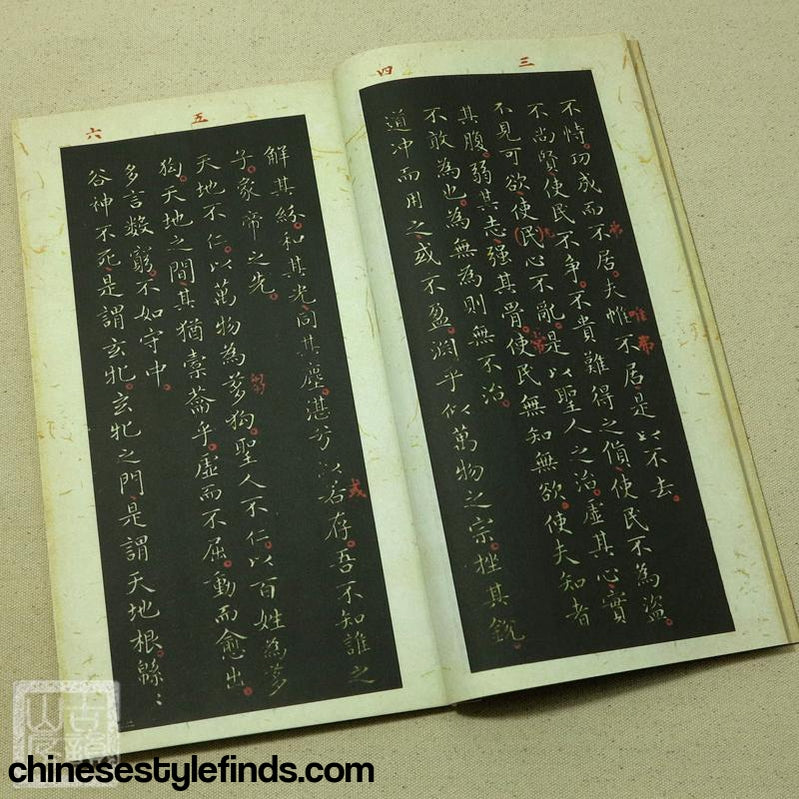 三
四
不恃。功成而不居。夫惟不居。是以不去。
唯弗
不尚賢使民不争。不貴難得之貨使民不為盗
不見可欲使(民)心不亂。是以聖人之治。虛其心實
其腹。弱其志。强其骨。使民無知無欲。使夫知者
常
不敢為也。為無為則無不治。
道冲而用之或不盈。淵乎似萬物之宗。挫其銳
五
六
解其紛。和其光同其塵。湛兮似若存。吾不知誰之
或
子。象帝之先。
天地不仁。以萬物為芻狗。聖人不仁。以百姓為芻
狗。天地之間其猶橐籥乎。虛而不屈。動而愈出。
多言數窮。不如守中。
谷神不死。是謂玄牝。玄牝之門。是謂天地根。緜〻
chinesestylefinds.com